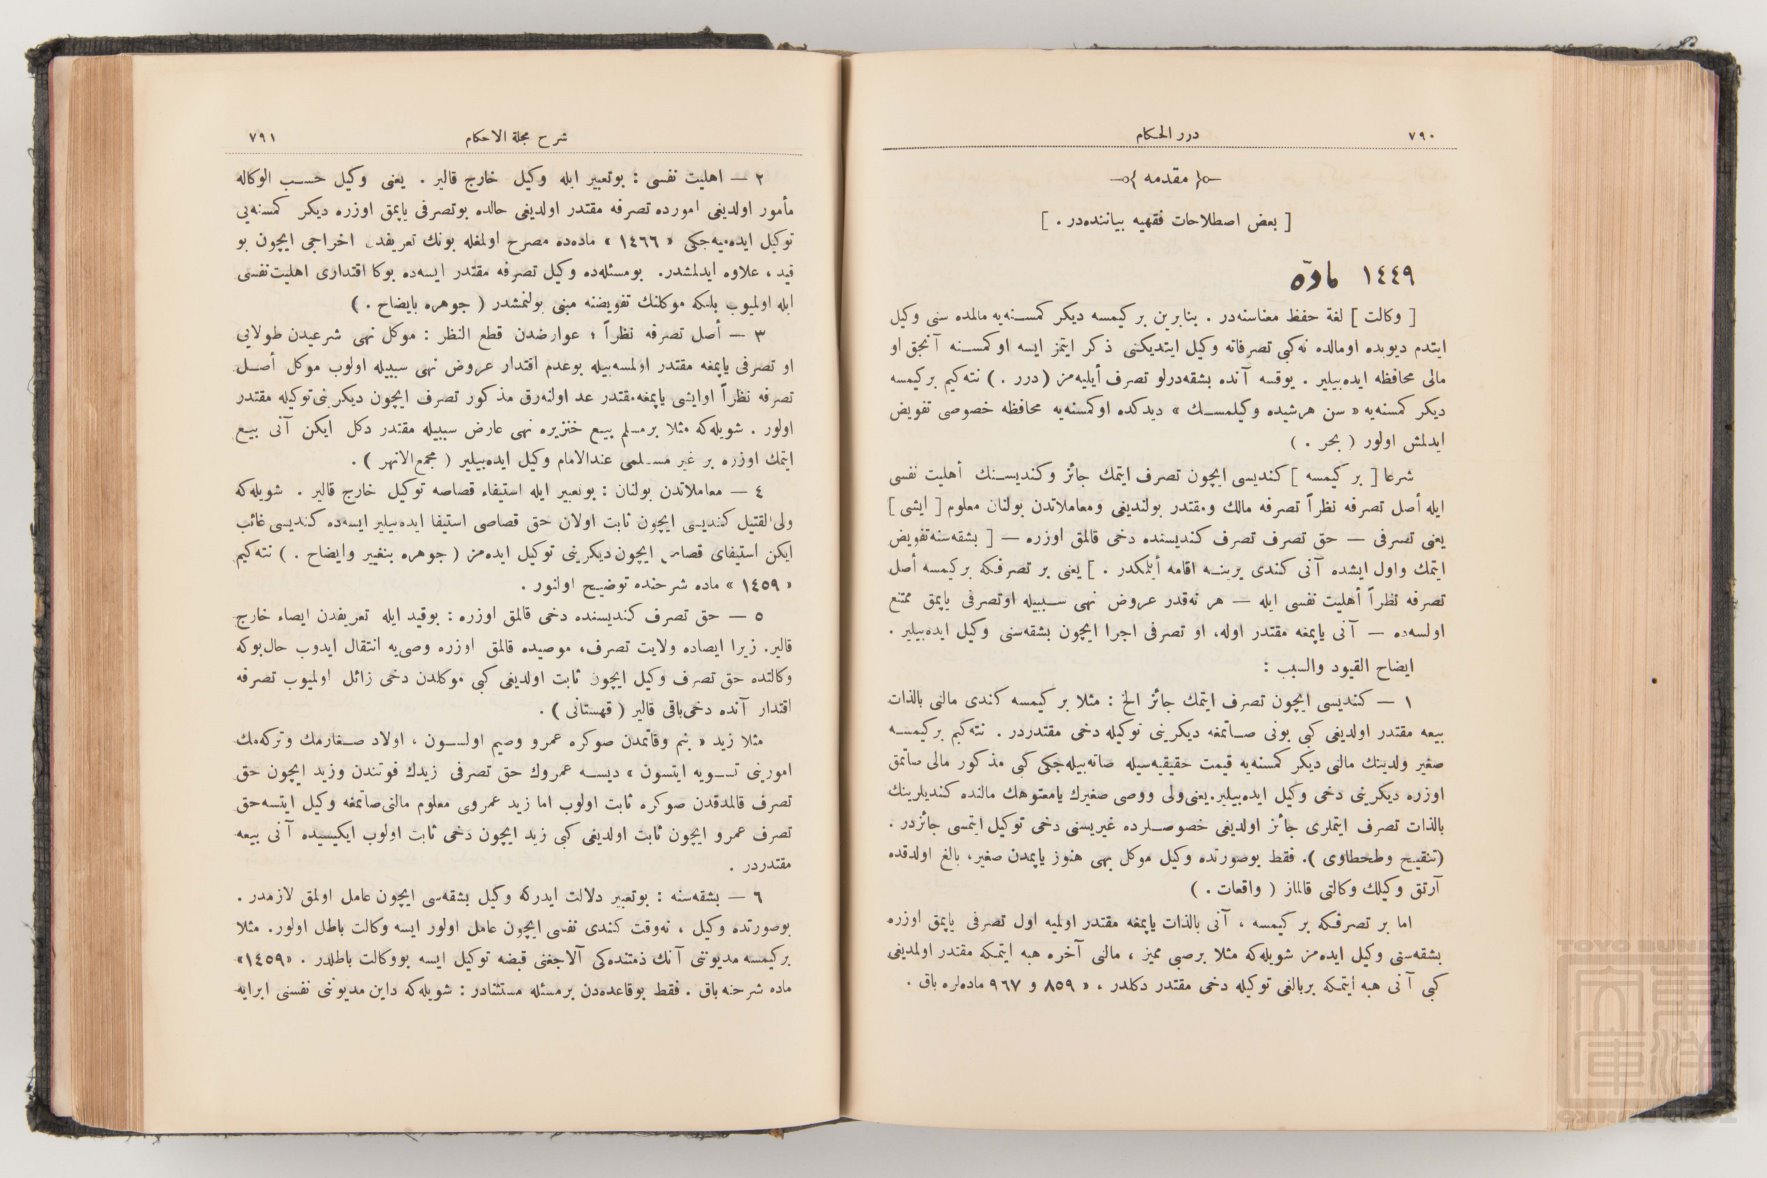 ٧٩٠
درر الحكام
مقدمه
[ بعض اصطلاحات فقهيه بياننده‌در . ]
١٤٤٩ ماده
[ وكالت ] لغة حفظ معناسنه‌در . بنابرين بر كيمسه ديكر كمســنه‌يه مالمده سنى وكيل
ايتدم ديوبده اومالده نه‌كبى تصرفاته وكيل ايتديكنى ذكر ايتمز ايسه اوكمســنه آنجق او
مالى محافظه ايده‌بيلير . يوقسه آنده بشقه‌درلو تصرف أيليه‌مز (درر . ) نته‌كيم بركيمسه
ديكر كمسنه‌يه « سن هرشيده وكيلمســك » ديدكده اوكمسنه‌يه محافظه خصوصى تفويض
ايدلمش اولور ( بحر . )
شرعا [ بر كيمسه ] كنديسى ايچون تصرف ايتمك جائز وكنديســنك أهليت نفسى
ايله أصل تصرفه نظراً تصرفه مالك ومقتدر بولنديغى ومعاملاتدن بولنان معلوم [ ايشى ]
يعنى تصرفى — حق تصرف تصرف كنديسنده دخى قالمق اوزره — [ بشقه‌سنه تفويض
ايتمك واول ايشده آنى كندى يرينــه اقامه أيلمكدر . ] يعنى بر تصرفكه بركيمسه أصل
تصرفه نظراً أهليت نفسى ايله — هر نه‌قدر عروض نهى ســببيله اوتصرفى ياپمق ممتنع
اولسه‌ده — آنى ياپمغه مقتدر اوله، او تصرفى اجرا ايچون بشقه‌سنى وكيل ايده‌بيلير .
ايضاح القيود والسبب :
١ — كنديسى ايچون تصرف ايتمك جائز الخ : مثلا بر كيمسه كندى مالنى بالذات
بيعه مقتدر اولديغى كبى بونى صــاتمغه ديكرينى توكيله دخى مقتدردر . نته‌كيم بركيمســه
صغير ولدينك مالنى ديكر كمسنه‌يه قيمت حقيقيه‌سيله صاته‌بيله‌جكى كبى مذكور مالى صاتمق
اوزره ديكرينى دخى وكيل ايده‌بيلير. يعنى ولى ووصى صغيرك يامعتوهك مالنده كنديلرينك
بالذات تصرف ايتملرى جائز اولديغى خصوصــلرده غيريسنى دخى توكيل ايتمسى جائزدر .
(تنقيح وطحطاوى ). فقط بوصورتده وكيل موكل بهى هنوز ياپمدن صغير، بالغ اولدقده
آرتق وكيلك وكالتى قالماز ( واقعات . )
اما بر تصرفكه بر كيمسه ، آنى بالذات ياپمغه مقتدر اولميه اول تصرفى ياپمق اوزره
بشقه‌سنى وكيل ايده‌مز شويله‌كه مثلا برصبى مميز ، مالنى آخره هبه ايتمكه مقتدر اولمديغى
كبى آنى هبه ايتمكه بربالغى توكيله دخى مقتدر دكلدر . « ٨٥٩ و ٩٦٧ ماده‌لره باق .
شرح مجلة الاحكام
٧٩١
٢ — اهليت نفسى : بوتعبير ايله وكيل خارج قالير . يعنى وكيل حســب الوكاله
مأمور اولديغى امورده تصرفه مقتدر اولديغى حالده بوتصرفى ياپمق اوزره ديكر كمسنه‌يى
توكيل ايده‌ميه‌جكى « ١٤٦٦ » ماده‌ده مصرح اولمغله بونك تعريفدن اخراجى ايچون بو
قيد ، علاوه ايدلمشدر. بومسئله‌ده وكيل تصرفه مقتدر ايسه‌ده بوكا اقتدارى اهليت نفسى
ايله اولميوب بلكه موكلنك تفويضنه مبنى بولنمشدر ( جوهره بايضاح . )
٣ — أصل تصرفه نظراً ؛ عوارضدن قطع النظر : موكل نهى شرعيدن طولايى
او تصرفى ياپمغه مقتدر اولمسه‌بيله بوعدم اقتدار عروض نهى سببيله اولوب موكل أصــل
تصرفه نظراً اوايشى ياپمغه مقتدر عد اولنه‌رق مذكور تصرف ايچون ديكرينى توكيله مقتدر
اولور . شويله‌كه مثلا برمسلم بيع خنزيره نهى عارض سببيله مقتدر دكل ايكن آنى بيع
ايتمك اوزره بر غير مسلمى عندالامام وكيل ايده‌بيلير ( مجمع الانهر ) .
٤ — معاملاتدن بولنان : بوتعبير ايله استيفاء قصاصه توكيل خارج قالير . شويله‌كه
ولى القتيل كنديسى ايچون ثابت اولان حق قصاصى استيفا ايده‌بيلير ايسه‌ده كنديسى غائب
ايكن استيفاى قصاص ايچون ديكرينى توكيل ايده‌مز ( جوهره بتغيير وايضاح . ) نته‌كيم
« ١٤٥٩ » ماده شرحنده توضيح اولنور .
٥ — حق تصرف كنديسنده دخى قالمق اوزره : بوقيد ايله تعريفدن ايصاء خارج
قالير. زيرا ايصاده ولايت تصرف، موصيده قالمق اوزره وصى‌يه انتقال ايدوب حال‌بوكه
وكالتده حق تصرف وكيل ايچون ثابت اولديغى كبى موكلدن دخى زائل اولميوب تصرفه
اقتدار آنده دخى باقى قالير ( قهستانى ) .
مثلا زيد « بنم وفاتمدن صوكره عمرو وصيم اولســون ، اولاد صــغارمك وتركه‌مك
امورينى تســويه ايتسون » ديســه عمروك حق تصرفى زيدك فوتندن وزيد ايچون حق
تصرف قالمدقدن صوكره ثابت اولوب اما زيد عمروى معلوم مالنى صاتمغه وكيل ايتسه حق
تصرف عمرو ايچون ثابت اولديغى كبى زيد ايچون دخى ثابت اولوب ايكيسيده آنى بيعه
مقتدردر .
٦ — بشقه‌سنه : بوتعبير دلالت ايدركه وكيل بشقه‌سى ايچون عامل اولمق لازمدر .
بوصورتده وكيل ، نه‌وقت كندى نفسى ايچون عامل اولور ايسه وكالت باطل اولور. مثلا
بركيمسه مديونى آنك ذمتنده‌كى آلاجغنى قبضه توكيل ايسه بووكالت باطلدر . «١٤٥٩»
ماده شرحنه باق . فقط بوقاعده‌دن برمسئله مستثنادر : شويله‌كه داين مديونى نفسنى ابرايه
TOYO BUNKO
東洋文庫